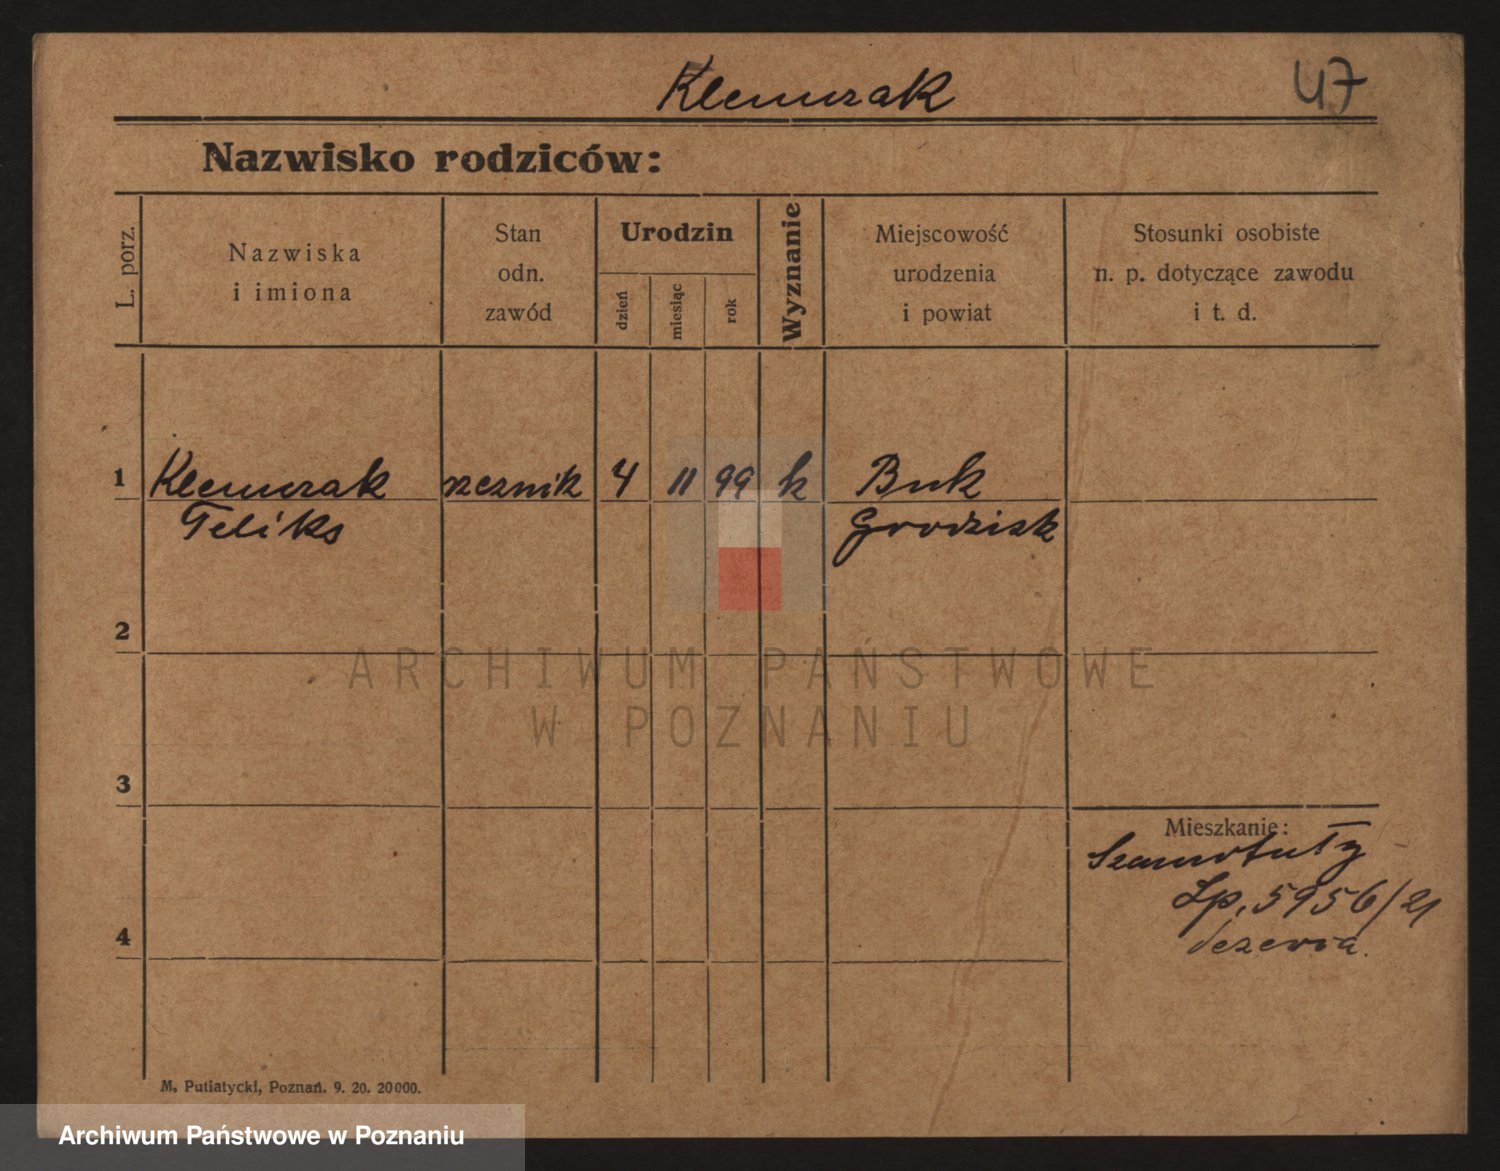 Klemurak
47
Nazwisko rodziców:
L. porz.
Nazwiska
i imiona
Stan
odn.
zawód
Urodzin
dzień
miesiąc
rok
Wyznanie
Miejscowość
urodzenia
i powiat
Stosunki osobiste
n. p. dotyczące zawodu
i t. d.
1 Klemurak rzeznik 4 11 99 k Buk
Feliks Grodzisk
2
ARCHIWUM PAŃSTWOWE
W POZNANIU
3
Mieszkanie:
Szamotuły
Lp. 5956/21
4
M. Putiatycki, Poznań. 9. 20. 20000.
Archiwum Państwowe w Poznaniu